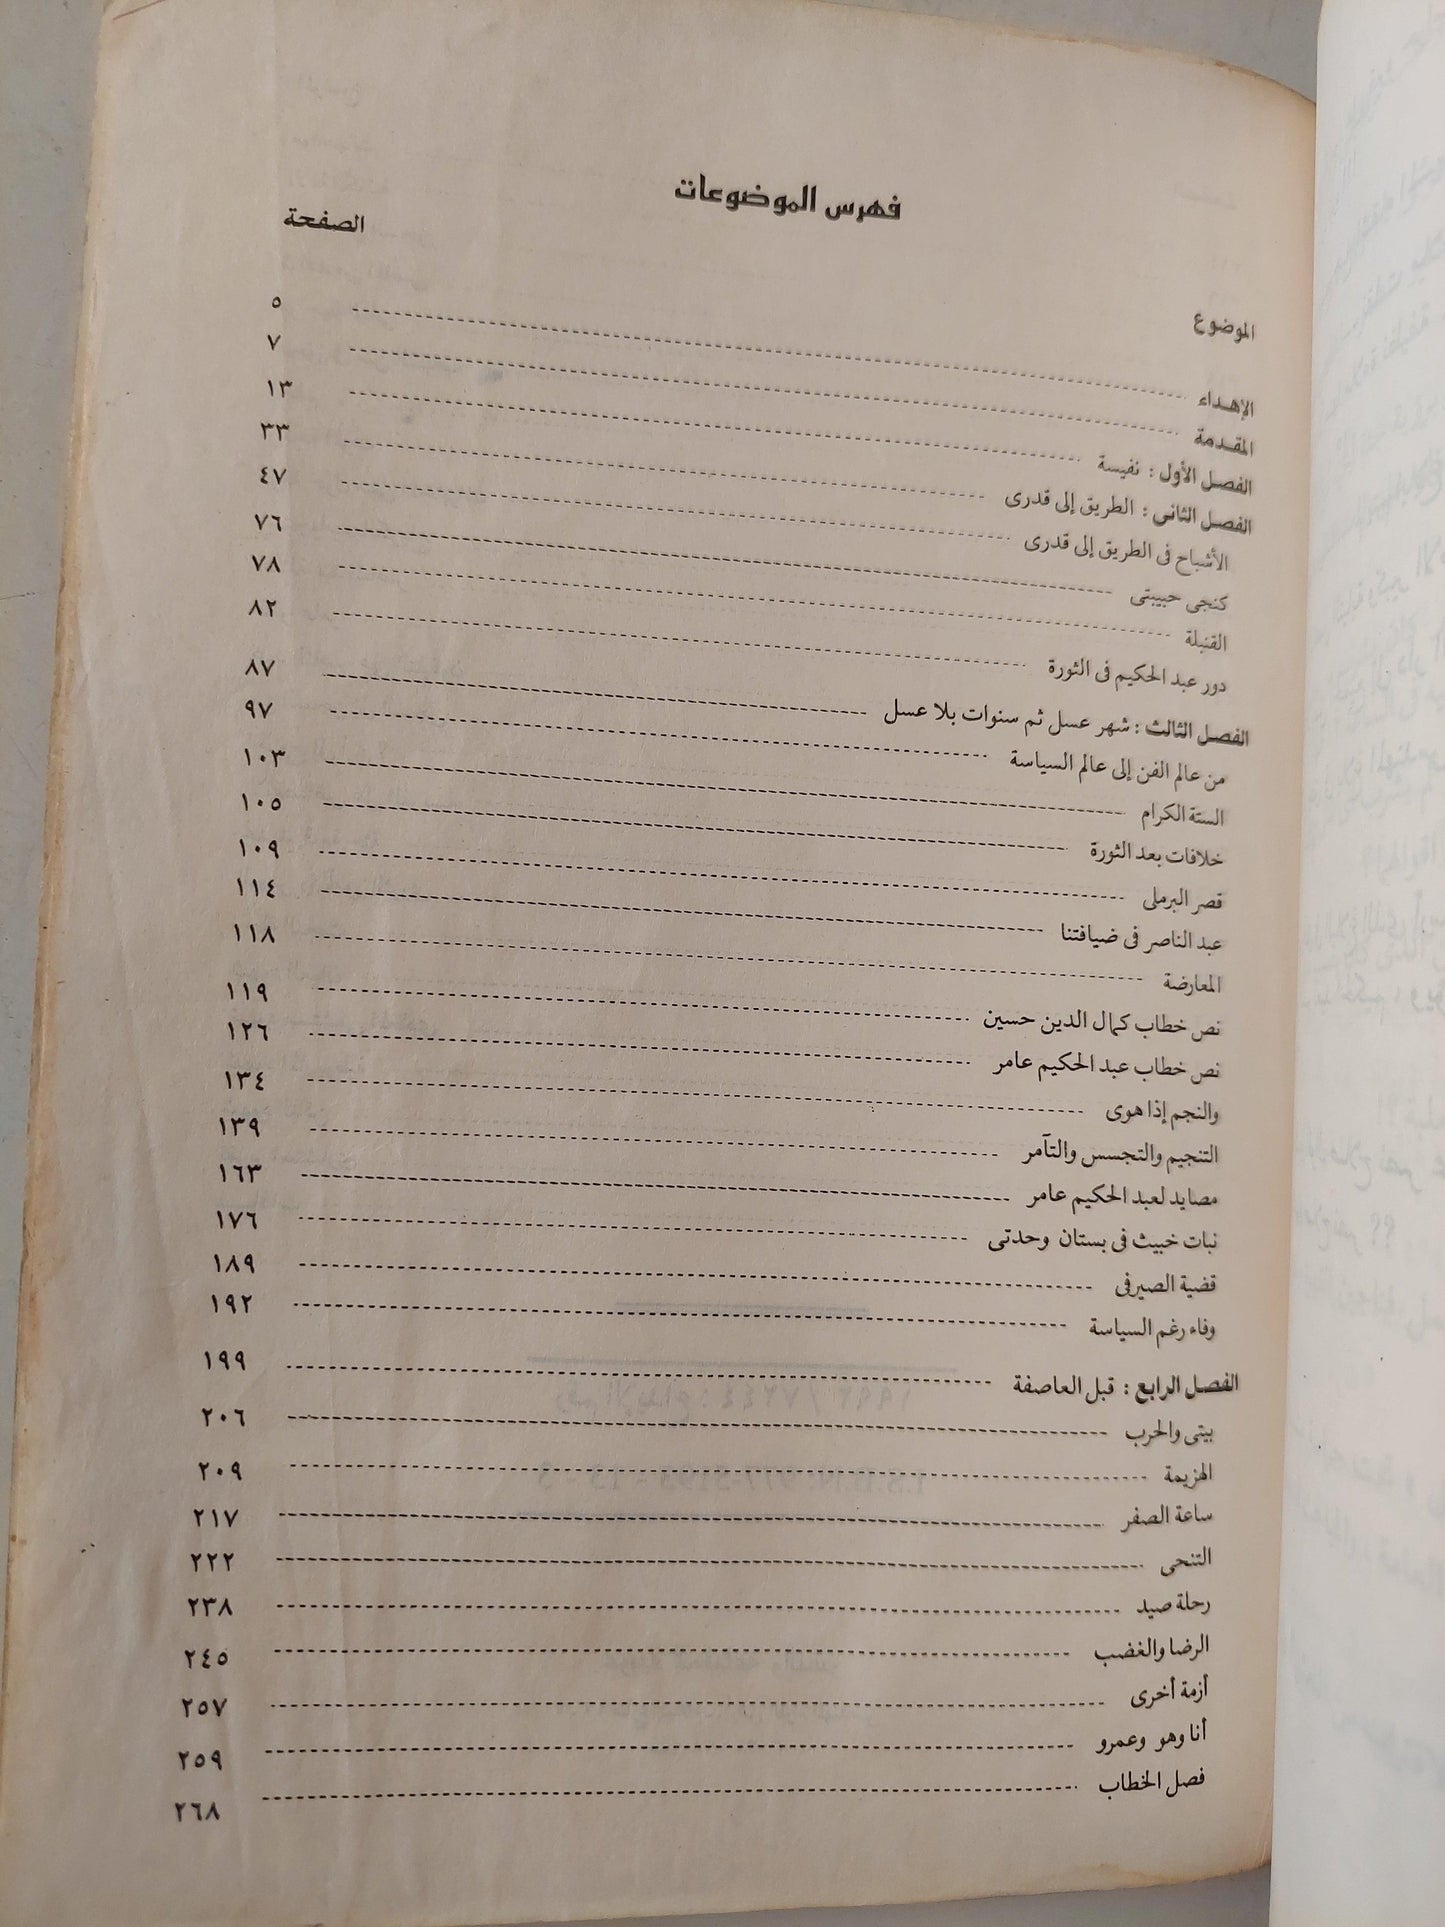 فهرس الموضوعات
الموضوع الصفحة
الإهداء ٥
المقدمة ٧
الفصل الأول : نفيسة ١٣
الفصل الثانى : الطريق إلى قدرى ٣٣
الأشباح فى الطريق إلى قدرى ٤٧
كنجى حبيبتى ٧٦
القنبلة ٧٨
دور عبد الحكيم فى الثورة ٨٢
الفصل الثالث : شهر عسل ثم سنوات بلا عسل ٨٧
من عالم الفن إلى عالم السياسة ٩٧
الستة الكرام ١٠٣
خلافات بعد الثورة ١٠٥
قصر البرملى ١٠٩
عبد الناصر فى ضيافتنا ١١٤
المعارضة ١١٨
نص خطاب كمال الدين حسين ١١٩
نص خطاب عبد الحكيم عامر ١٢٦
والنجم إذا هوى ١٣٤
التنجيم والتجسس والتآمر ١٣٩
مصايد لعبد الحكيم عامر ١٦٣
نبات خبيث فى بستان وحدتى ١٧٦
قضية الصيرفى ١٨٩
وفاء رغم السياسة ١٩٢
الفصل الرابع : قبل العاصفة ١٩٩
بيتى والحرب ٢٠٦
الهزيمة ٢٠٩
ساعة الصفر ٢١٧
التنحى ٢٢٢
رحلة صيد ٢٣٨
الرضا والغضب ٢٤٥
أزمة أخرى ٢٥٧
أنا وهو وعمرو ٢٥٩
فصل الخطاب ٢٦٨